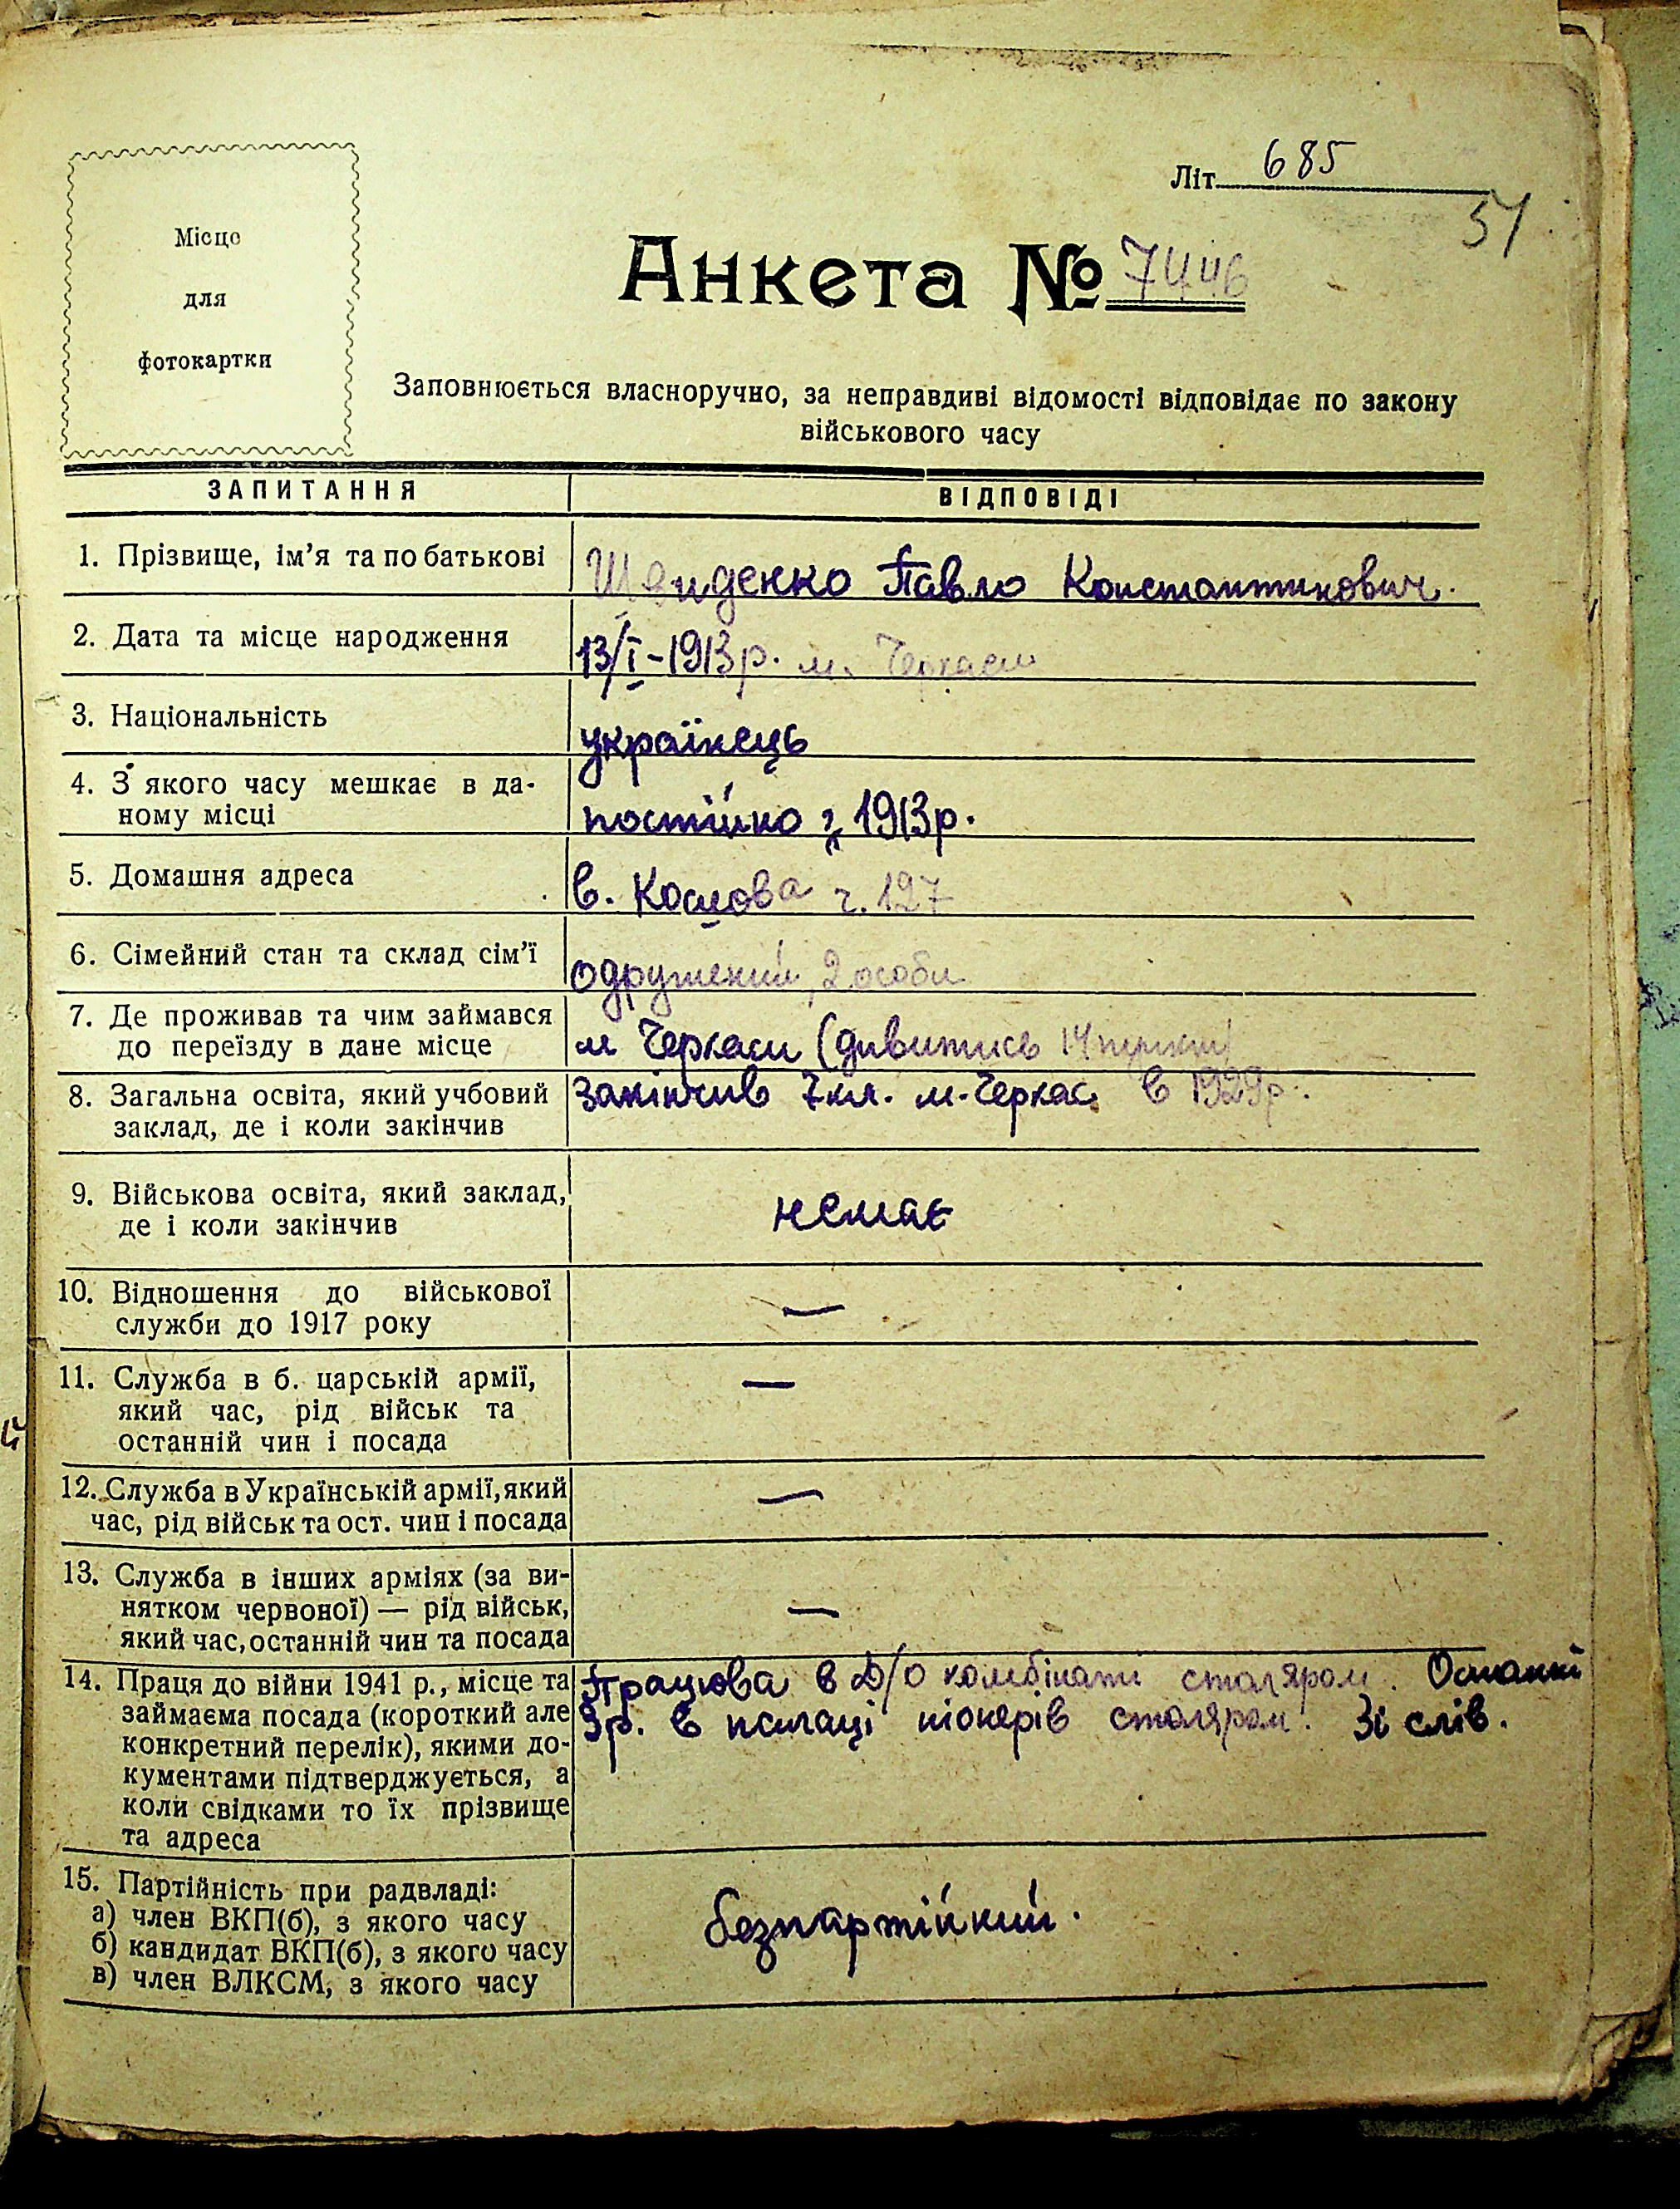 Літ. 685
51
Місце
для
фотокартки
Анкета № 7446
Заповнюється власноручно, за неправдиві відомості відповідає по закону
військового часу
ЗАПИТАННЯ ВІДПОВІДІ
1. Прізвище, ім’я та по батькові Швиденко Павло Константинович.
2. Дата та місце народження 13/I-1913р. м. Черкаси
3. Національність українець
4. З якого часу мешкає в да-
ному місці постійно з 1913р.
5. Домашня адреса в. ч. 127
6. Сімейний стан та склад сім’ї одружений, 2 особи
7. Де проживав та чим займався
до переїзду в дане місце м Черкаси (дивитись 14 пункт)
8. Загальна освіта, який учбовий закінчив 7кл. м. Черкас в 1929р.
заклад, де і коли закінчив
9. Військова освіта, який заклад, немає
де і коли закінчив
10. Відношення до військової —
служби до 1917 року
11. Служба в б. царській армії, —
який час, рід військ та
останній чин і посада
12. Служба в Українській армії, який —
час, рід військ та ост. чин і посада
13. Служба в інших арміях (за ви-
нятком червоної) — рід військ, —
який час, останній чин та посада
14. Праця до війни 1941 р., місце та Працював в Д/О комбінаті столяром. Останні
займаєма посада (короткий але 3р. в палаці піонерів столяром. Зі слів.
конкретний перелік), якими до-
кументами підтверджується, а
коли свідками то їх прізвище
та адреса
15. Партійність при радвладі:
а) член ВКП(б), з якого часу безпартійний.
б) кандидат ВКП(б), з якого часу
в) член ВЛКСМ, з якого часу